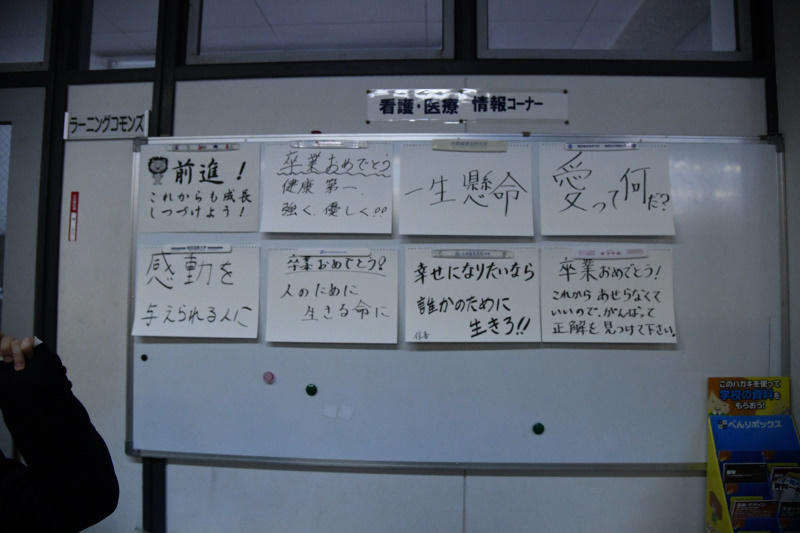 看護・医療 情報コーナー
ラーニングコモンズ
前進！
これからも成長
しつづけよう！
卒業おめでとう
健康第一、
強く、優しく。。
一生懸命
愛って何だ？
感動を
与えられる人に
卒業おめでとう！
人のために
生きる命に
幸せになりたいなら
誰かのために
生きろ！！
卒業おめでとう！
これから あせらなくて
いいので、がんばって
正解を見つけて下さい。
このハガキを使って
学校の資料を
もらおう！
べんりボックス